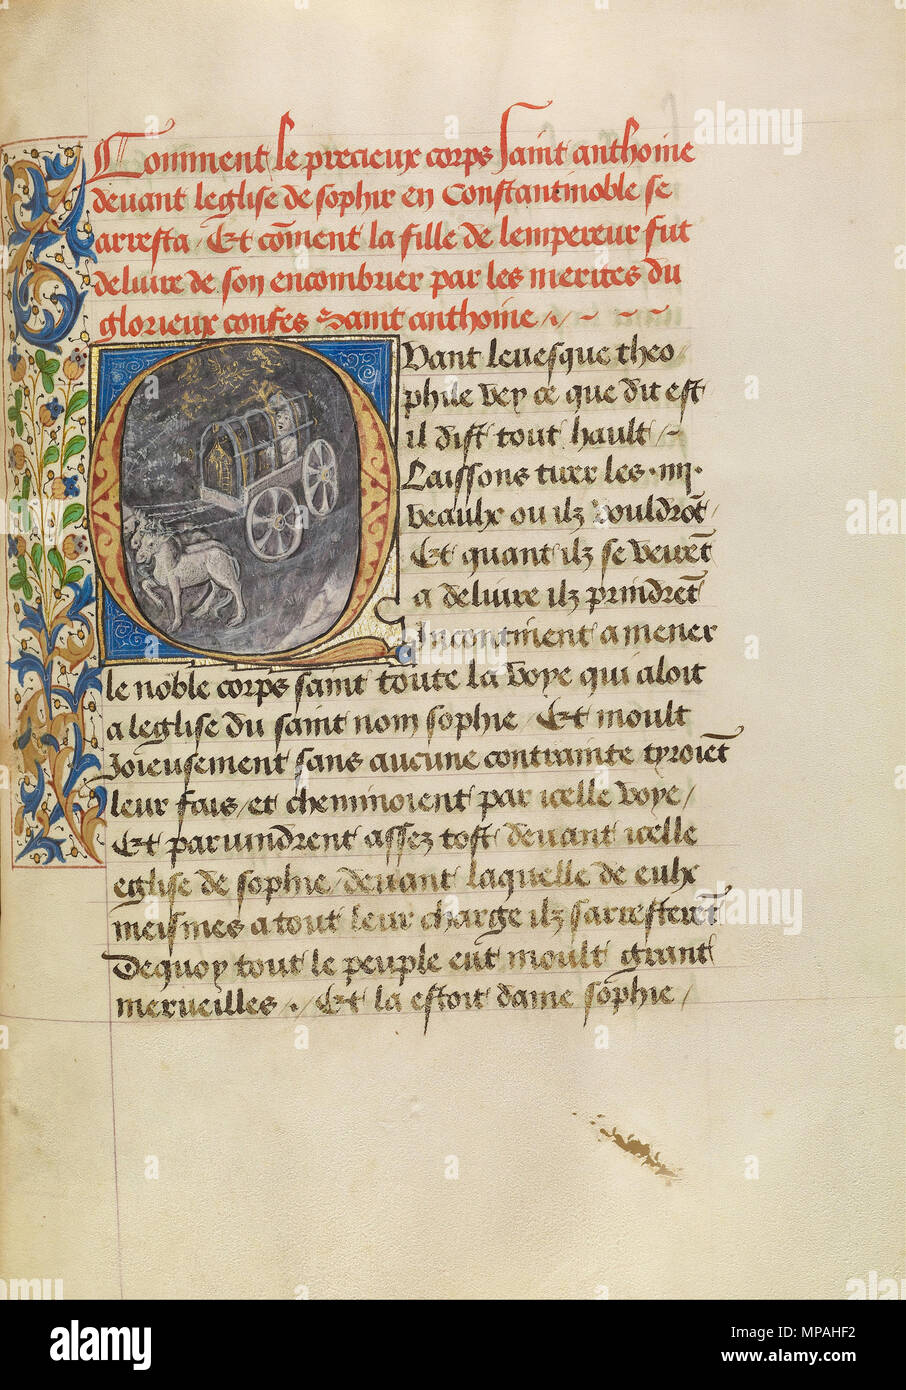 Comment le precieux corps saint anthoine
deuant leglise de sophie en Constantinoble se
arresta / Et cõment la fille de lempereur fut
deliuree de son encombrier par les merites du
glorieux confes saint anthoine
Quant leuesque theo
phile vey ce que dit est
il dist tout hault /
Laissons tirer les .iiij.
beaulx ou ilz vouldrõt
Et quant ilz se verrẽt
a deliure ilz prindrẽt
Incontinent a mener
le noble corps saint toute la voye qui aloit
a leglise du saint nom sophie / Et moult
Joieusement sans aucune contrainte tyroiẽt
leur fais / et cheminoient par icelle voye /
Et paruindrent assez tost deuant icelle
eglise de sophie / deuant laquelle de eulx
meismes a tout leur charge ilz sarresterẽt
Dequoy tout le peuple eut moult grant
merueilles . / Et la estoit dame sophie /
alamy
a
alamy
Image ID: MPAHF2
www.alamy.com